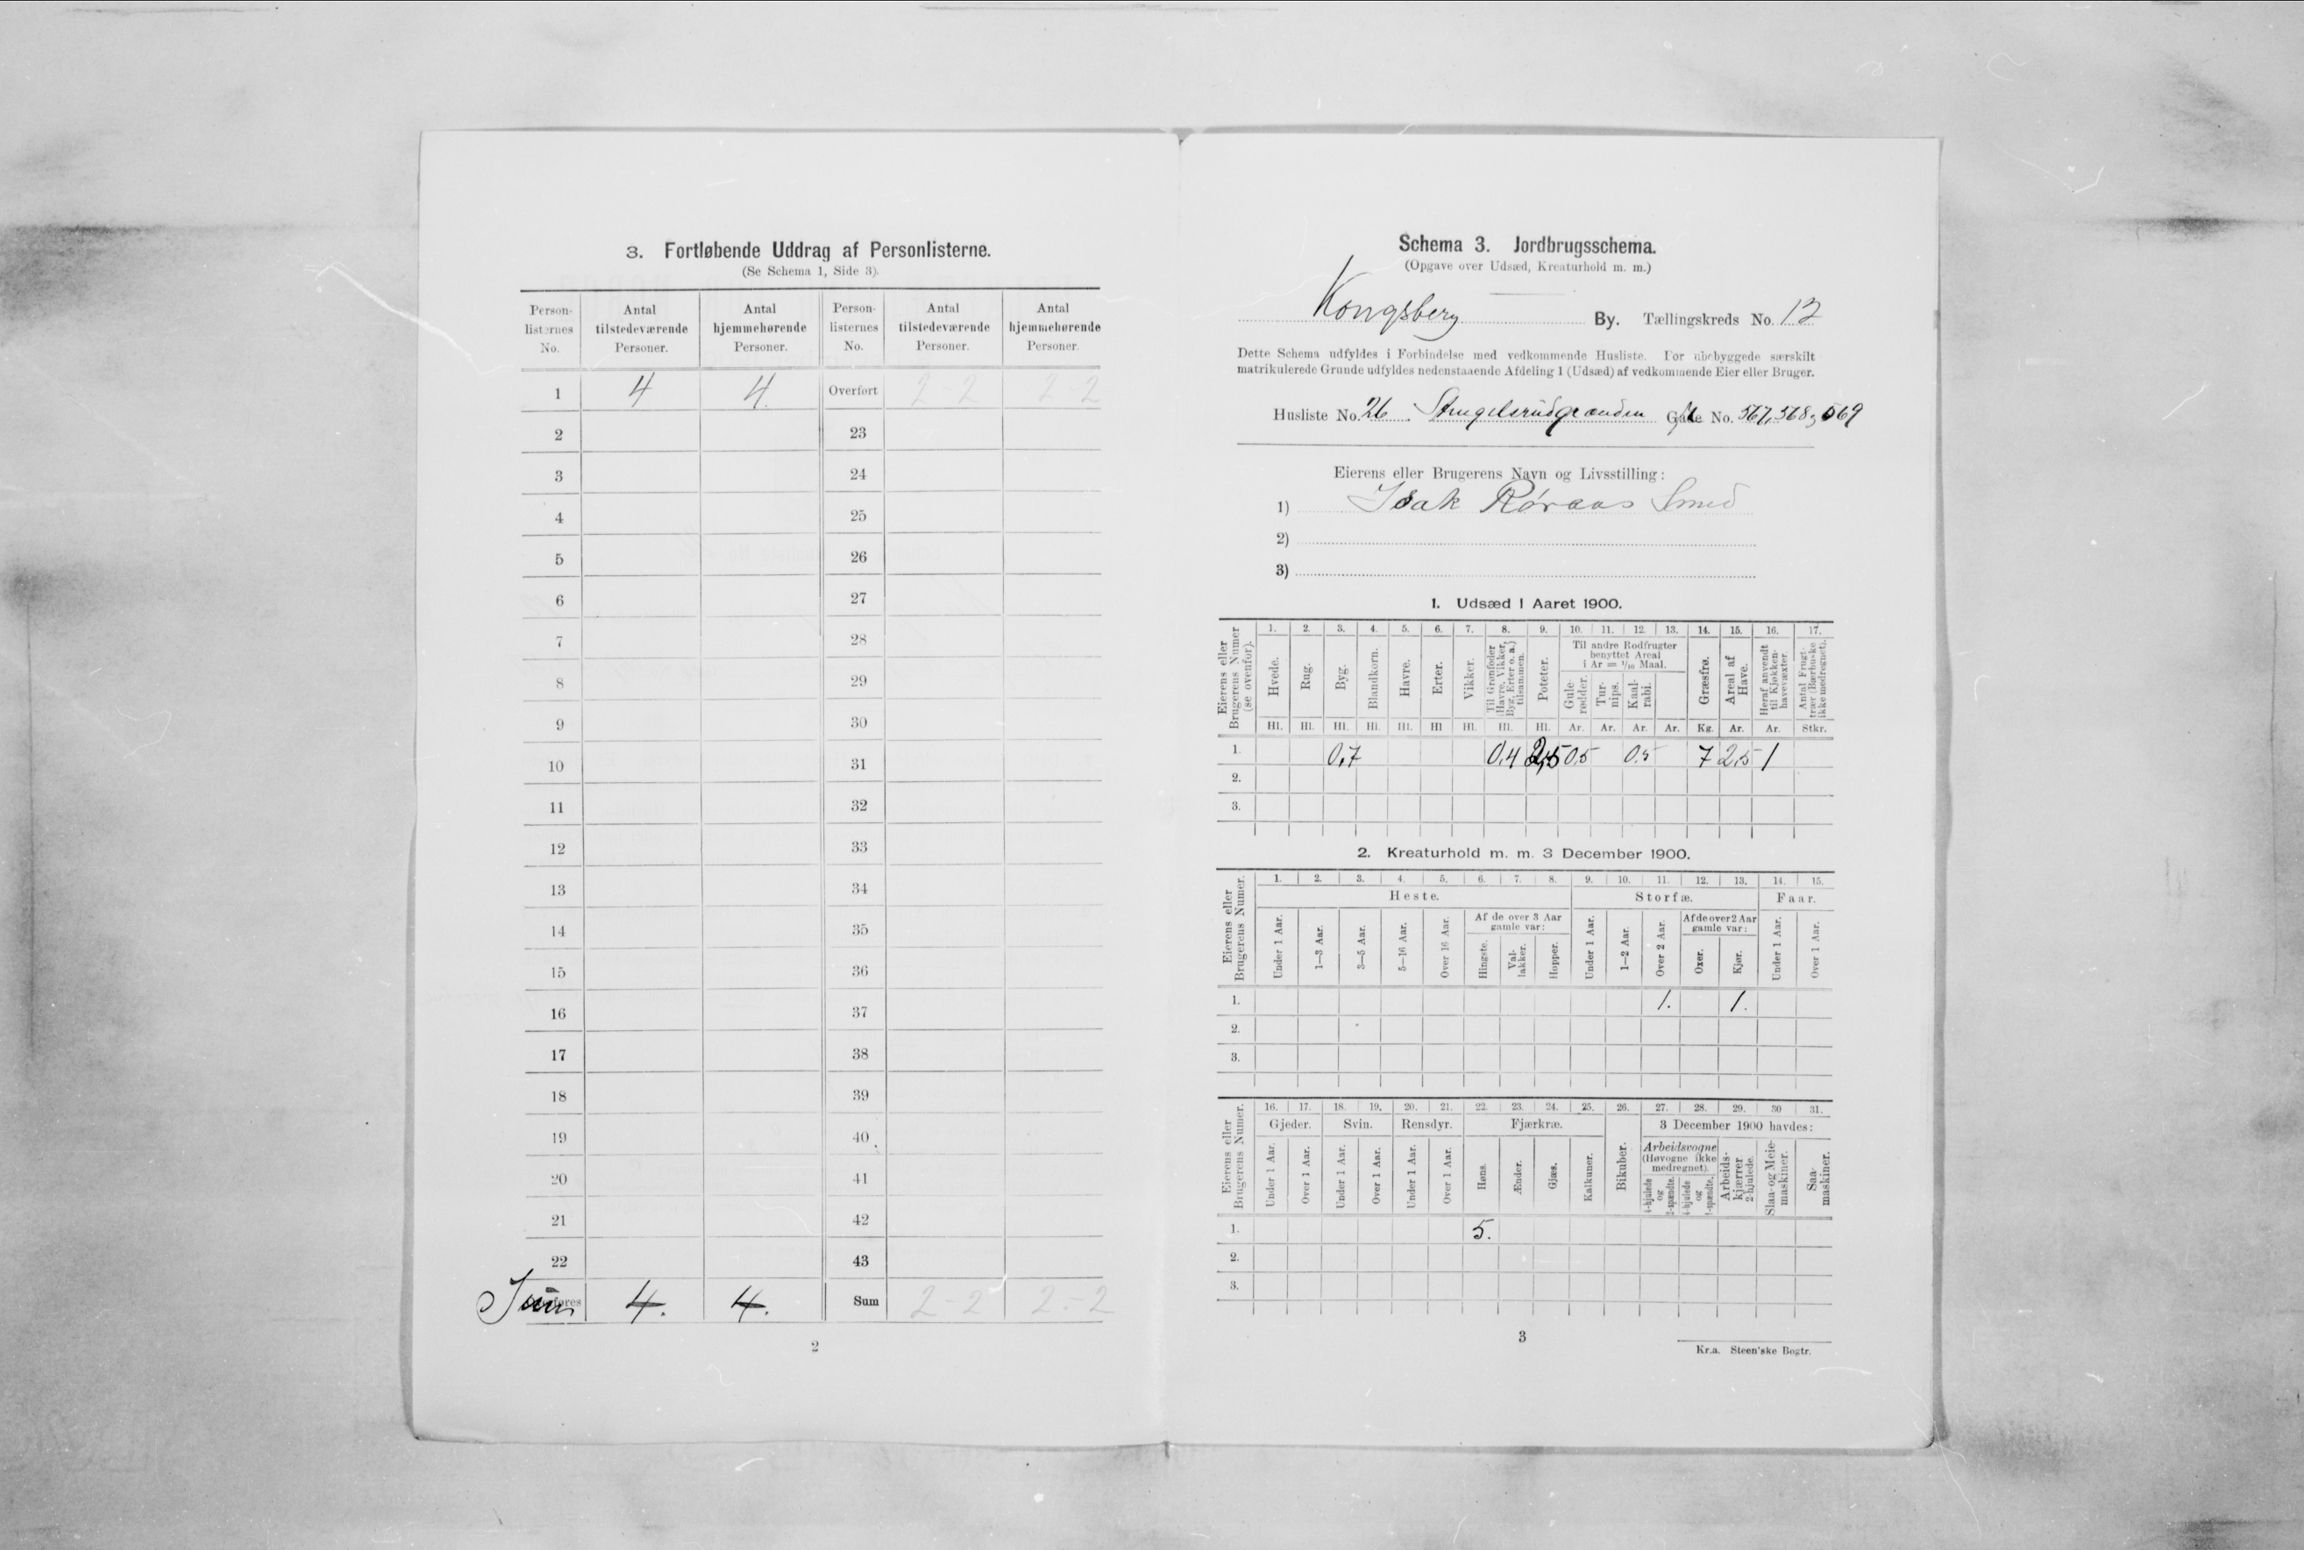 3. Fortløbende Uddrag af Personlisterne.
(Se Schema 1, Side 3).
Person-listernes No. Antal tilstedeværende Personer. Antal hjemmehørende Personer. Person-listernes No. Antal tilstedeværende Personer. Antal hjemmehørende Personer.
1 4 4. Overført 2 2 2 2
2 23
3 24
4 25
5 26
6 27
7 28
8 29
9 30
10 31
11 32
12 33
13 34
14 35
15 36
16 37
17 38
18 39
19 40
20 41
21 42
22 43
Sum 4. 4. Sum 2-2 2.-2
2
Schema 3. Jordbrugsschema.
(Opgave over Udsæd, Kreaturhold m. m.)
Kongsberg By. Tællingskreds No. 12
Dette Schema udfyldes i Forbindelse med vedkommende Husliste. For ubebyggede særskilt
matrikulerede Grunde udfyldes nedenstaaende Afdeling 1 (Udsæd) af vedkommende Eier eller Bruger.
Husliste No. 26. No. 567, 568, 569
Eierens eller Brugerens Navn og Livsstilling:
1) Isak Røraas Smed
2)
3)
1. Udsæd i Aaret 1900.
Eierens eller Brugerens Numer (se ovenfor).
1. 2. 3. 4. 5. 6. 7. 8. 9. 10. 11. 12. 13. 14. 15. 16. 17.
Hvede. Rug. Byg. Blandkorn. Havre. Erter. Vikker. Til Grønfoder (Havre, Vikker, Byg, Erter o. a.) tilsammen. Poteter. Til andre Rodfrugter benyttet Areal i Ar = 1/10 Maal. Gule-rødder. Tur-nips. Kaal-rabi. Græsfrø. Areal af Have. Heraf anvendt til Kjøkken-havevæxter. Antal Frugt-trær (Bærbuske ikke medregnet).
Hl. Hl. Hl. Hl. Hl. Hl Hl. Hl. Hl. Ar. Ar. Ar. Ar. Kg. Ar. Ar. Stkr.
1. 0,7 0,4 2,5 0,5 0,5 7 2,5 1
2.
3.
2. Kreaturhold m. m. 3 December 1900.
Eierens eller Brugerens Numer.
1. 2. 3. 4. 5. 6. 7. 8. 9. 10. 11. 12. 13. 14. 15.
Heste. Storfæ. Faar.
Under 1 Aar. 1—3 Aar. 3—5 Aar. 5—16 Aar. Over 16 Aar. Af de over 3 Aar gamle var: Hingste. Val-lakker. Hopper. Under 1 Aar. 1—2 Aar. Over 2 Aar. Af de over 2 Aar gamle var: Oxer. Kjør. Under 1 Aar. Over 1 Aar.
1. 1. 1.
2.
3.
Eierens eller Brugerens Numer.
16. 17. 18. 19. 20. 21. 22. 23. 24. 25. 26. 27. 28. 29. 30 31.
Gjeder. Svin. Rensdyr. Fjærkræ. Bikuber. 3 December 1900 havdes:
Under 1 Aar. Over 1 Aar. Under 1 Aar. Over 1 Aar. Under 1 Aar. Over 1 Aar. Høns. Ænder. Gjæs. Kalkuner. Arbeidsvogne (Høvogne ikke medregnet). 4-hjulede og 2-spændte. 4-hjulede og 1-spændte. Arbeids-kjærrer 2-hjulede. Slaa- og Meie-maskiner. Saa-maskiner.
1. 5.
2.
3.
3
Kr.a. Steen'ske Bogtr.